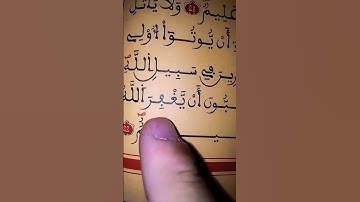 عَلِيمٌ ۝ وَلَا يَاتَلِ
أَنْ يُّوتُوٓاْ أُوْلِے
رِينَ فِے سَبِيلِ اِللَّهِ
بُّونَ أَنْ يَّغْفِرَ اَللَّهُ